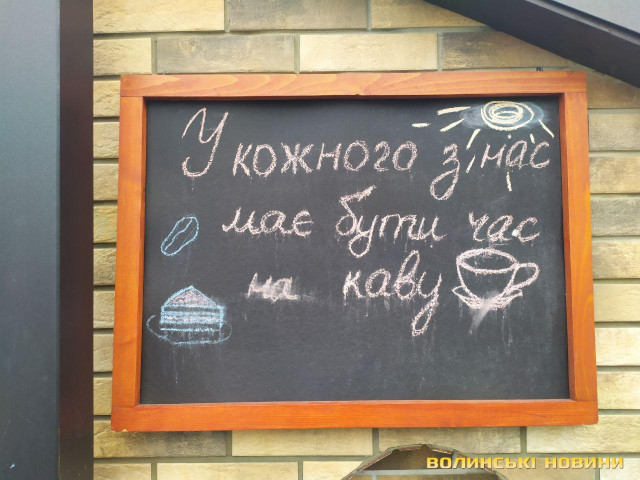 У кожного з нас
має бути час
на каву
ВОЛИНСЬКІ НОВИНИ